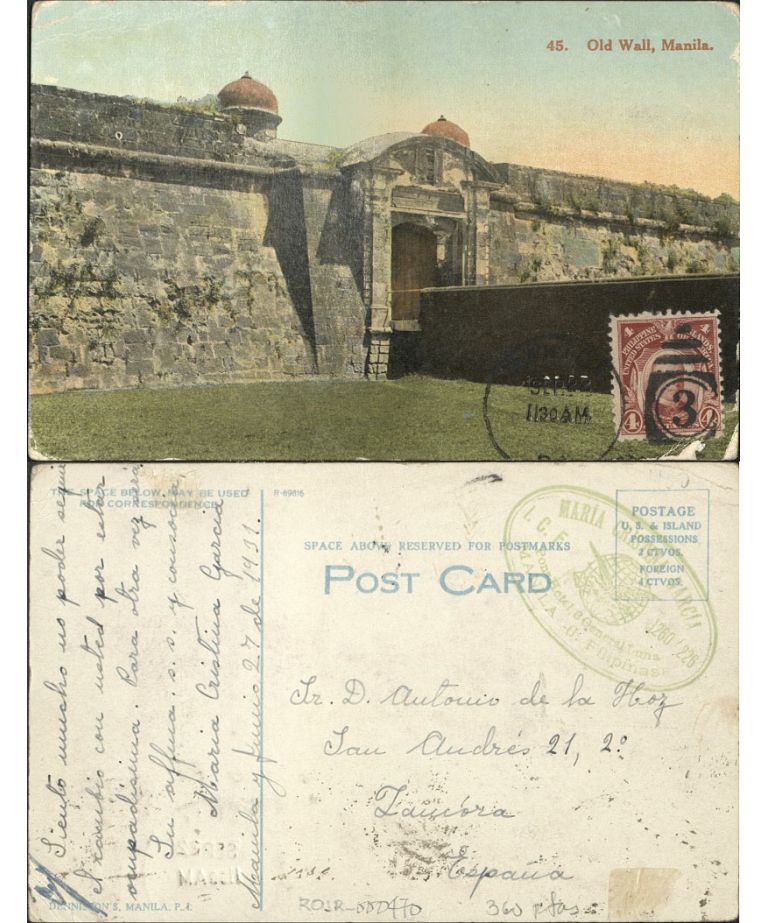 45. Old Wall, Manila.
4 4
PHILIPPINE ISLANDS
UNITED STATES OF
4 4
3
SEP 22
11 30 AM
THE SPACE BELOW MAY BE USED
FOR CORRESPONDENCE
R-69616
SPACE ABOVE RESERVED FOR POSTMARKS
POST CARD
POSTAGE
U. S. & ISLAND
POSSESSIONS
2 CTVOS.
FOREIGN
4 CTVOS.
MARIA CRISTINA GARCIA
I. C. E.
1260/226
MANILA - I. Filipinas
Siento mucho no poder seguir
el cambio con usted por estar
ocupadisima. Para otra vez será
Su affma. s. s. y consocia
Maria Cristina Garcia
Manila y Junio 27 de 1931.
Sr. D. Antonio de la Hoz
San Andrés 21, 2º
Zamora
España
SEP 22
11 30 AM
DENNISTON'S, MANILA, P. I.
360 ptas